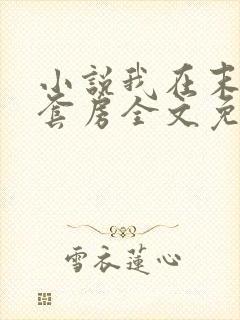 小說我在末
套房全文免
雪衣蓮心